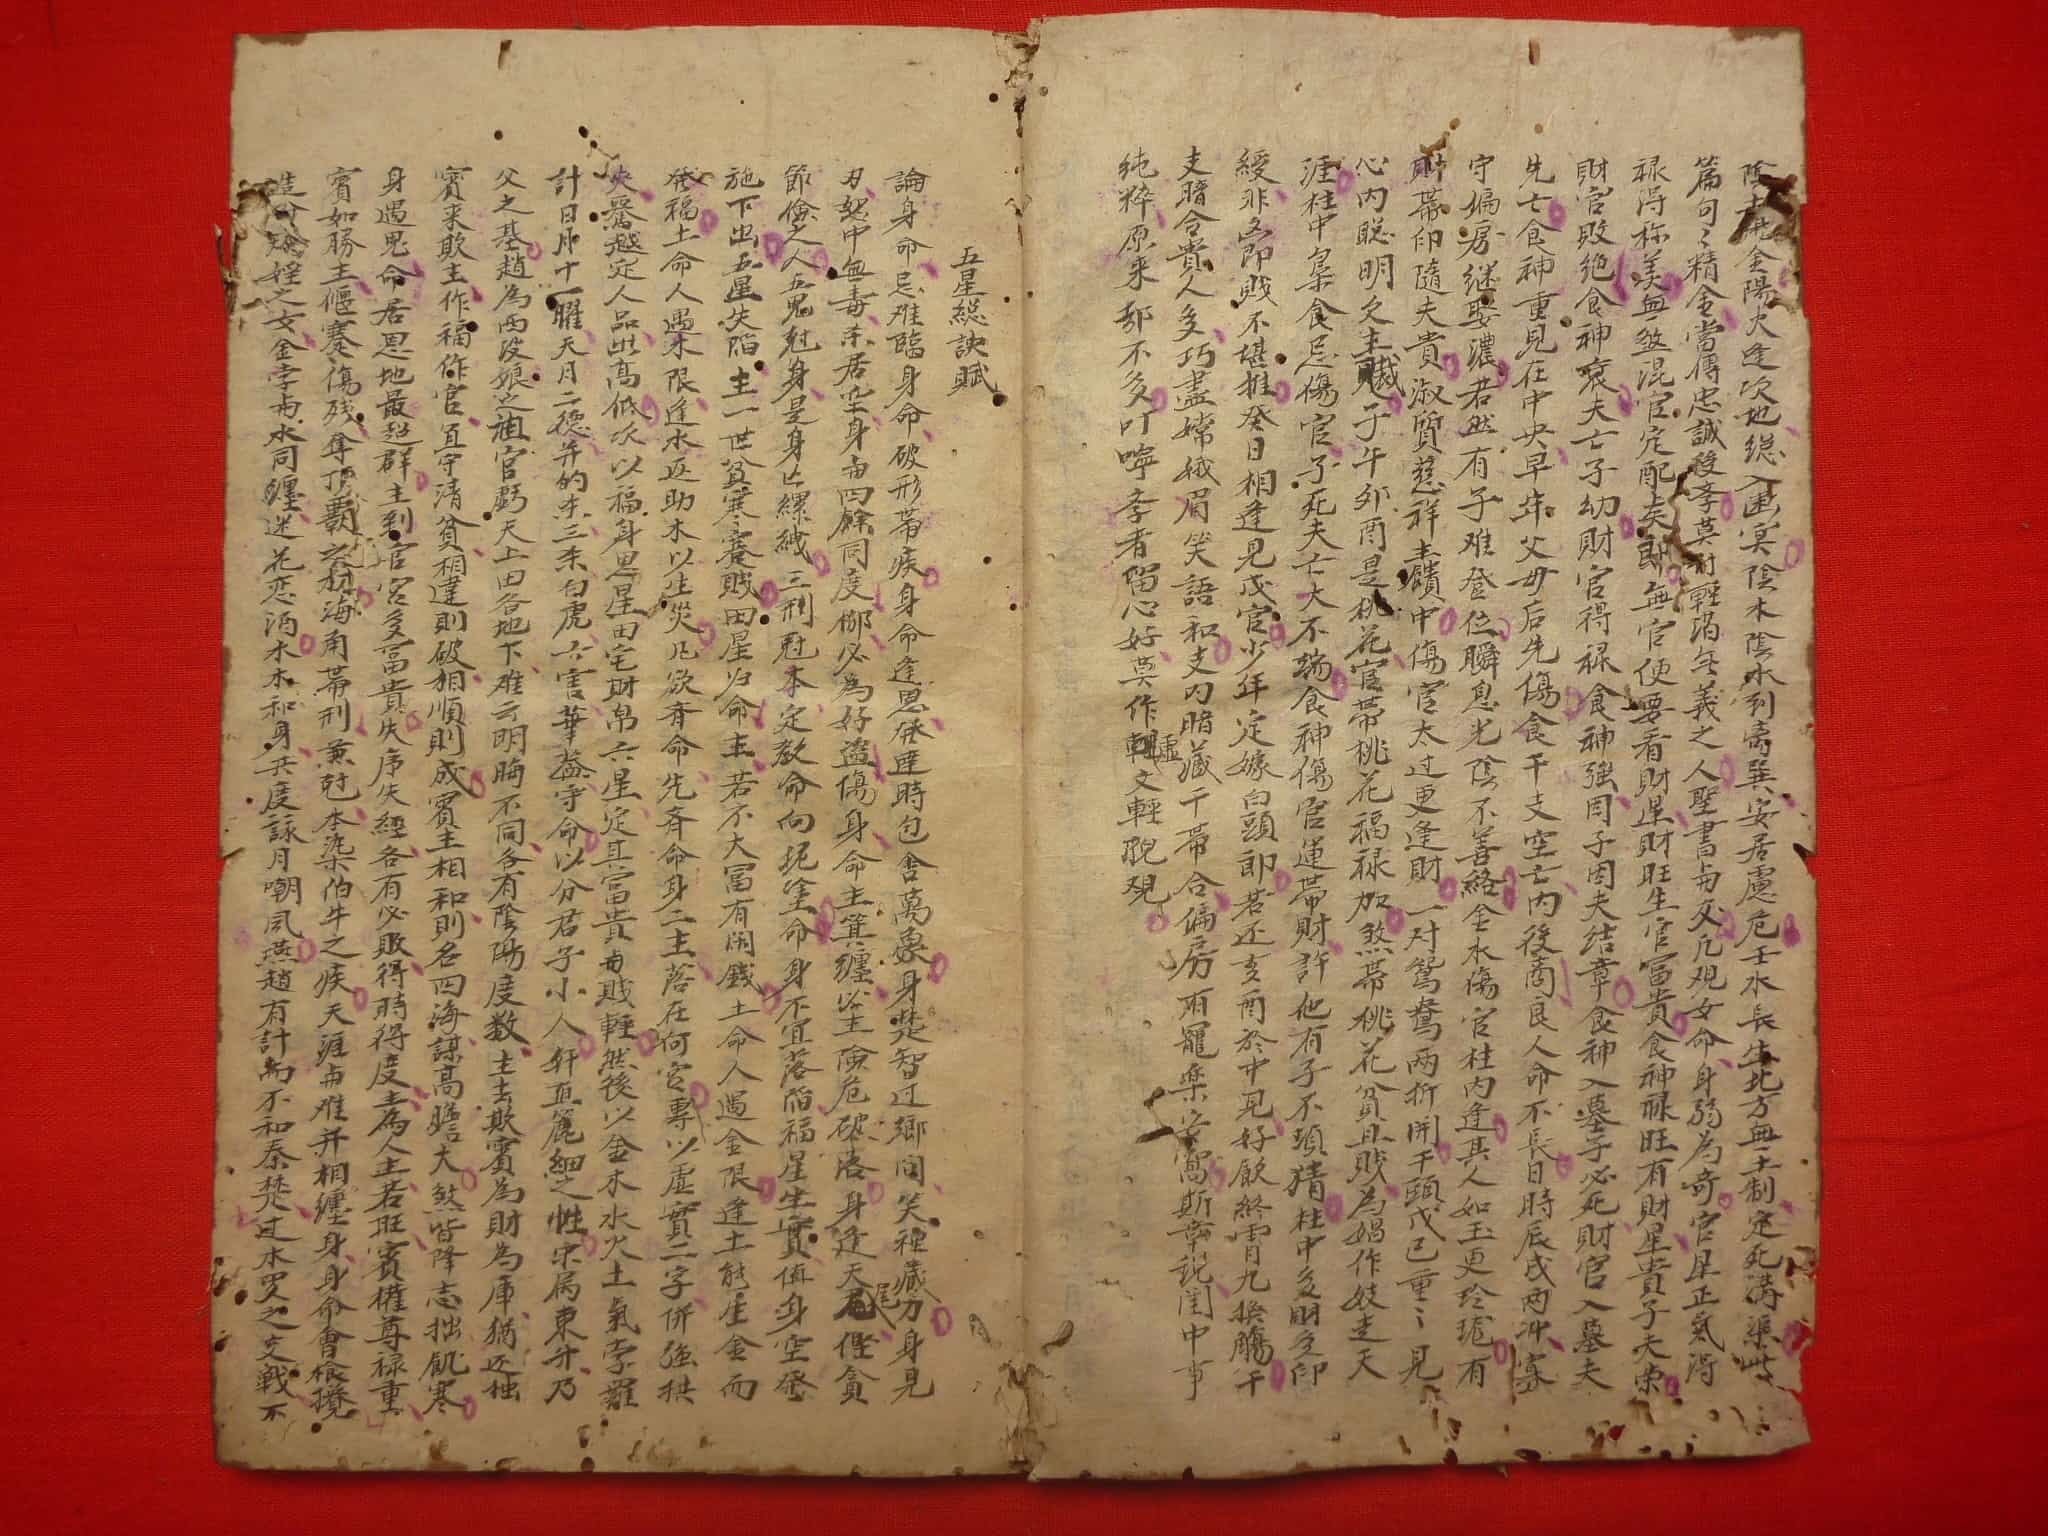 陰土能金陽火逢坎地總入幽冥陰木陰水到离巽安居慮危壬水長生北方無土制定死溝渠此
篇句〻精金當傳忠誠後李莫討輕滔無義之人聖書勿交凡观女命身弱為奇官星正氣得
禄得称美無煞混官定配夫郎無官便要看財星財旺生官富貴食神禄旺有財星貴子夫榮
財官敗絶食神衰夫亡子幼財官得禄食神強因子因夫结章食神入墓子必死財官入墓夫
先亡食神重見在中央早年父母后先傷食干支空亡内後商良人命不長日時辰戌两冲寡
守偏房継娶濃若然有子难登位瞬息光陰不善絡金水傷官柱内逢其人如玉更玲珑有
財帯印隨夫貴淑質慈祥主饋中傷官太过更逢財一对鴛鴦两折開干頭戊已重〻見
心内聪明欠主賊子午夘酉是桃花官帯桃花福禄加煞帯桃花貧且賎為娼作妓走天
涯柱中梟食忌傷官子死夫亡大不端食神傷官運帯財許他有子不須猜柱中多財多印
綬非凶即賎不堪推癸日相逢見戊官少年定嫁白頭郎若还亥酉於中見好飲終宵九換觴干
支暗合貴人多巧畫嫦娥眉笑語和支内暗藏干帯合偏房雨寵楽安窩斯章説闺中事
純粹原来都不多叮嚀李者留心好莫作虛文輕覗观
五星総訣賦
論身命忌难臨身命破形帯疾身命逢恩發達時包舍萬象身焚智过鄉间笑裡藏刀身見
刃怒中無毒杀居垒身勿四餘同度郷必為好盗傷身命主箕纏必主險危破落身逢天尾慳貪
節儉之人五鬼尅身是身亡縲絏三刑尅本定教命向坭塗命身不宜落陷福星生實值身空發
施下出五星失陷主一世貧寒蹇賎田星归命主若不大富有閒錢土命人遇金限逢土能生金而
發福土命人遇木限逢水返助木以生災凡欲斉命先斉命身二主落在何宮專以虛實二字併強拱
夾募越定人品出高低次以福身恩星田宅財帛六星定其富貴勿賎輕然後以金木水火土氣孛羅
計日月十一曜天月二德并的杀三杀白虎六害華蓋守命以分君子小人軒直麄細之性宋属東升乃
父之基趙為西没娘之祖官虧天上田各地下难云明晦不同各有陰陽度数主去欺賓為財為庫猶还拙
賓来欺主作福作官宜守清貧相達則破相順則成賓主相和則名四海謀高膽大煞皆降志拙飢寒
身遇鬼命居恩地最超群主到官宮多富貴失序失經各有必敗得時得度主為人主若旺賓權尊禄重
賓如勝主偃蹇傷残奪項覇之称海角帯刑兼尅本染伯牛之疾天涯勿难并相纏身身命會槍攙
淫之女金孛勿水同纏迷花恋酒水木和身共度詠月嘲風燕趙有計而不和秦焚过水罗之交戰不